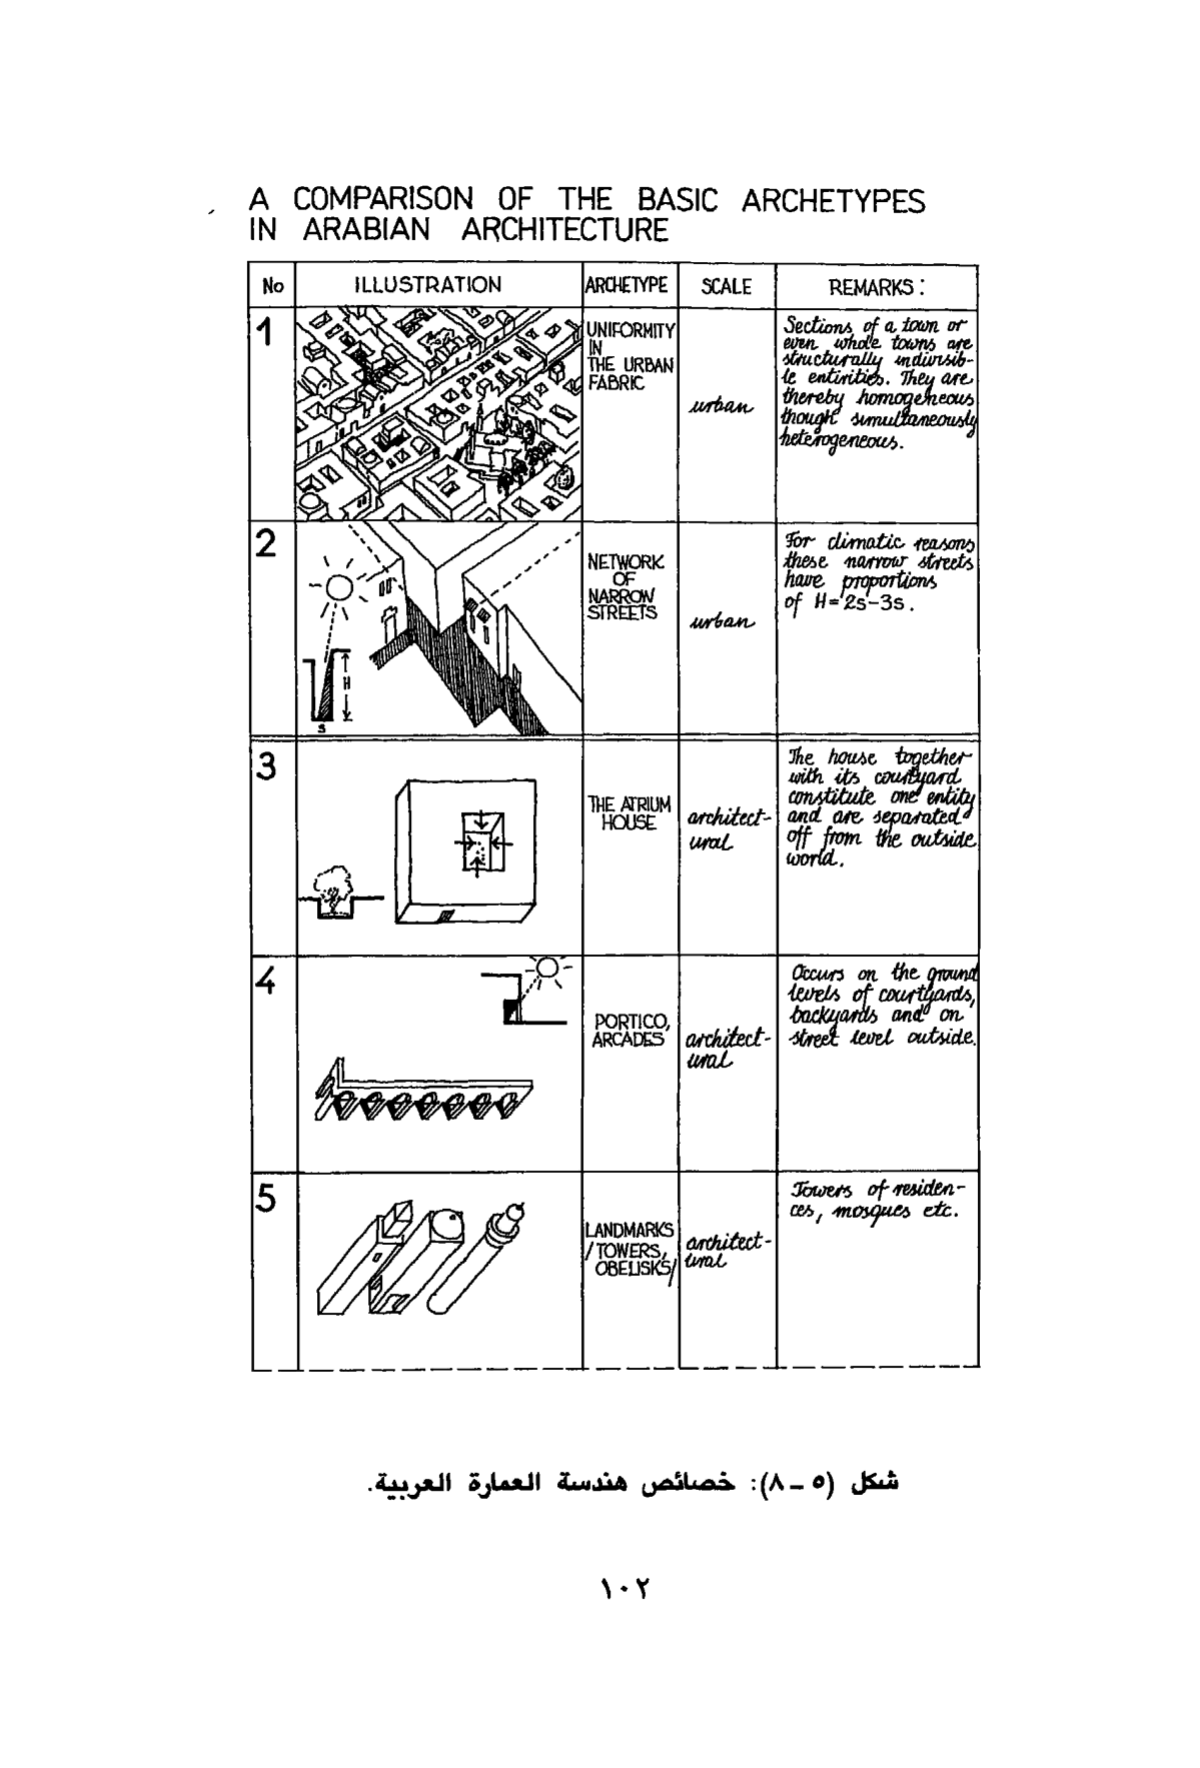 A COMPARISON OF THE BASIC ARCHETYPES
IN ARABIAN ARCHITECTURE
No ILLUSTRATION ARCHETYPE SCALE REMARKS:
1
UNIFORMITY
IN
THE URBAN
FABRIC
urban
Sections of a town or
even whole towns are
structurally indivisib-
le entirities. They are
thereby homogeneous
though simultaneously
heterogeneous.
2
H
s
NETWORK
OF
NARROW
STREETS
urban
For climatic reasons
these narrow streets
have proportions
of H=2s-3s.
3
THE ATRIUM
HOUSE
architect-
ural
The house together
with its courtyard
constitute one entity
and are separated
off from the outside
world.
4
PORTICO,
ARCADES
architect-
ural
Occurs on the ground
levels of courtyards,
backyards and on
street level outside.
5
LANDMARKS
/TOWERS,
OBELISKS/
architect-
ural
Towers of residen-
ces, mosques etc.
شكل (٥ - ٨): خصائص هندسة العمارة العربية.
١٠٢